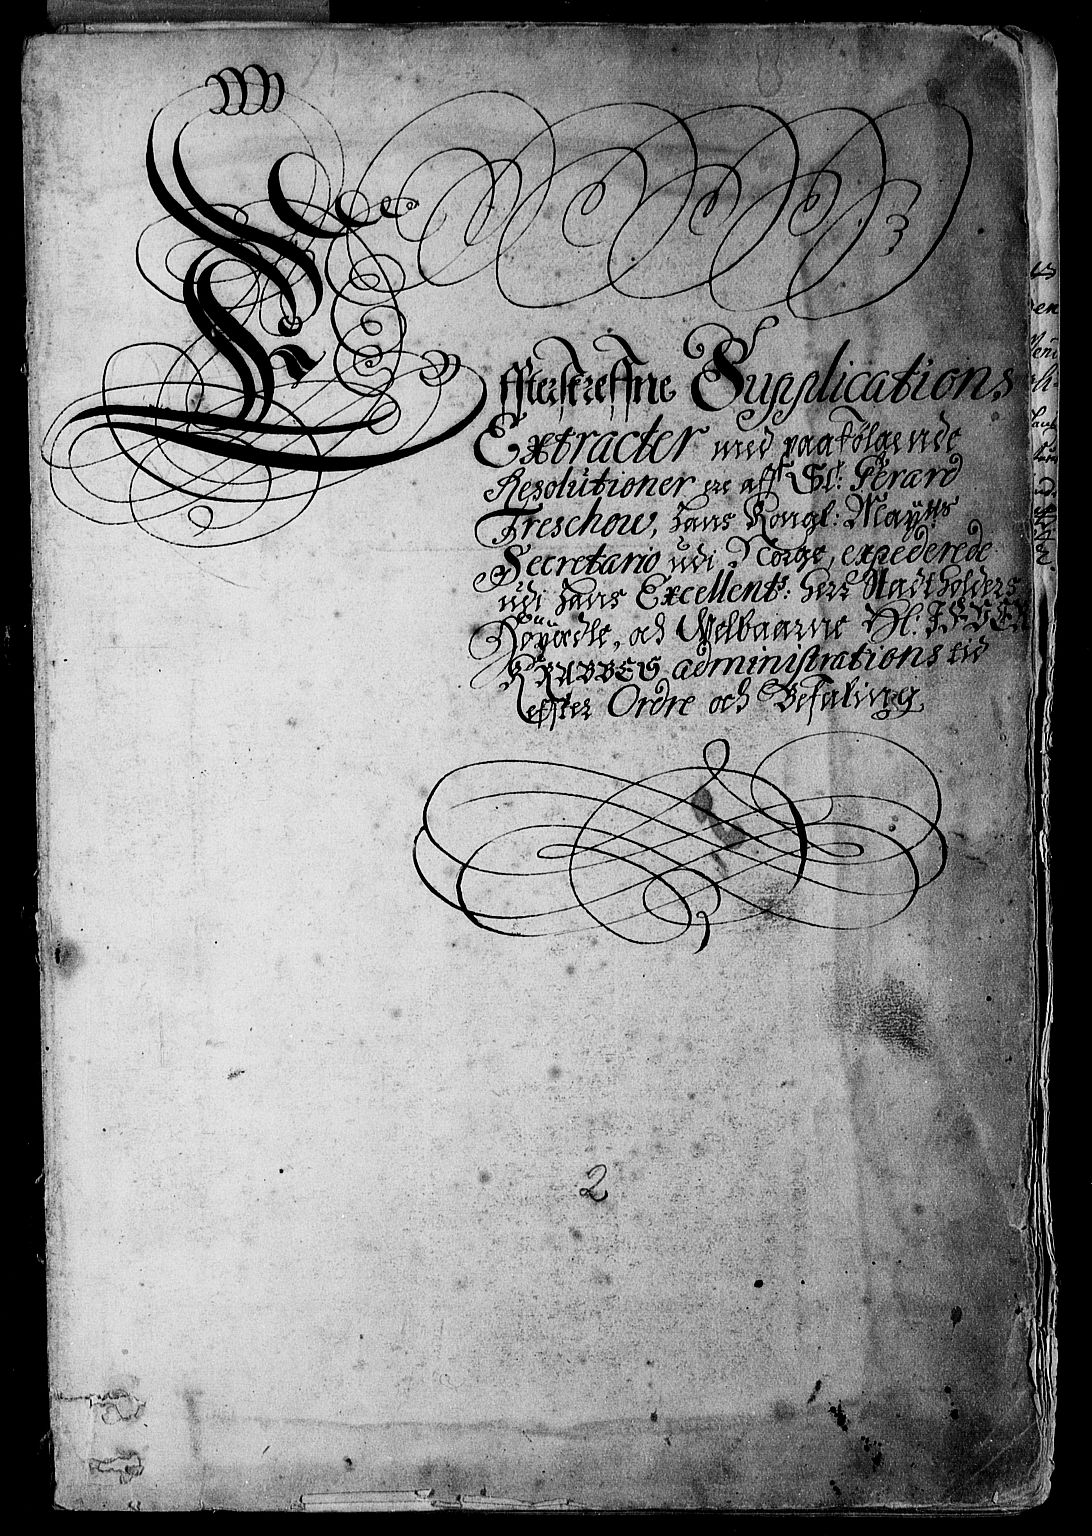 Effterskreffne Supplications
Extracter med paafølgende
Resolutioner ere aff Sl: Gerard
Treschow, hans Kongl: Mayts
Secretario udi Norge, expederede
udi hans Excellents: herr Stadtholders
Høyædle, och Welbaarne Hl: IFVER
KRABBES administrations tid
effter Ordre och Befaling
2